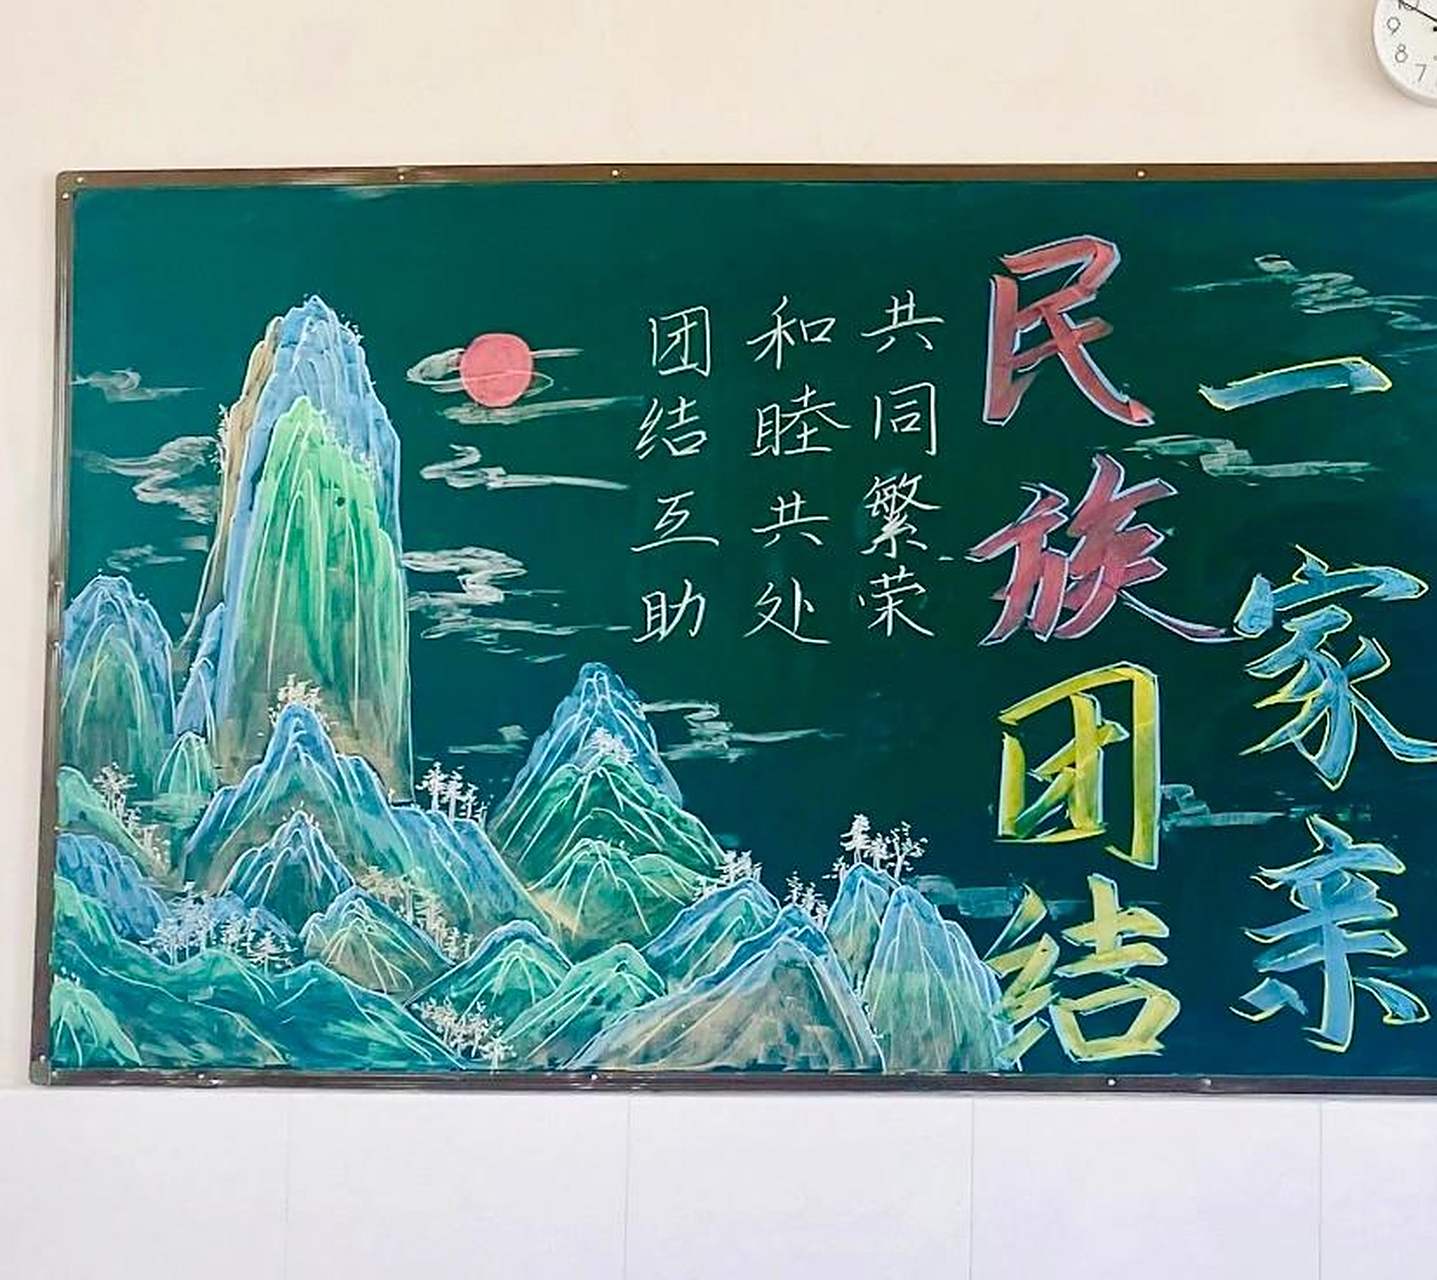 民族团结
一家亲
团结互助
和睦共处
共同繁荣
10
9
8
7